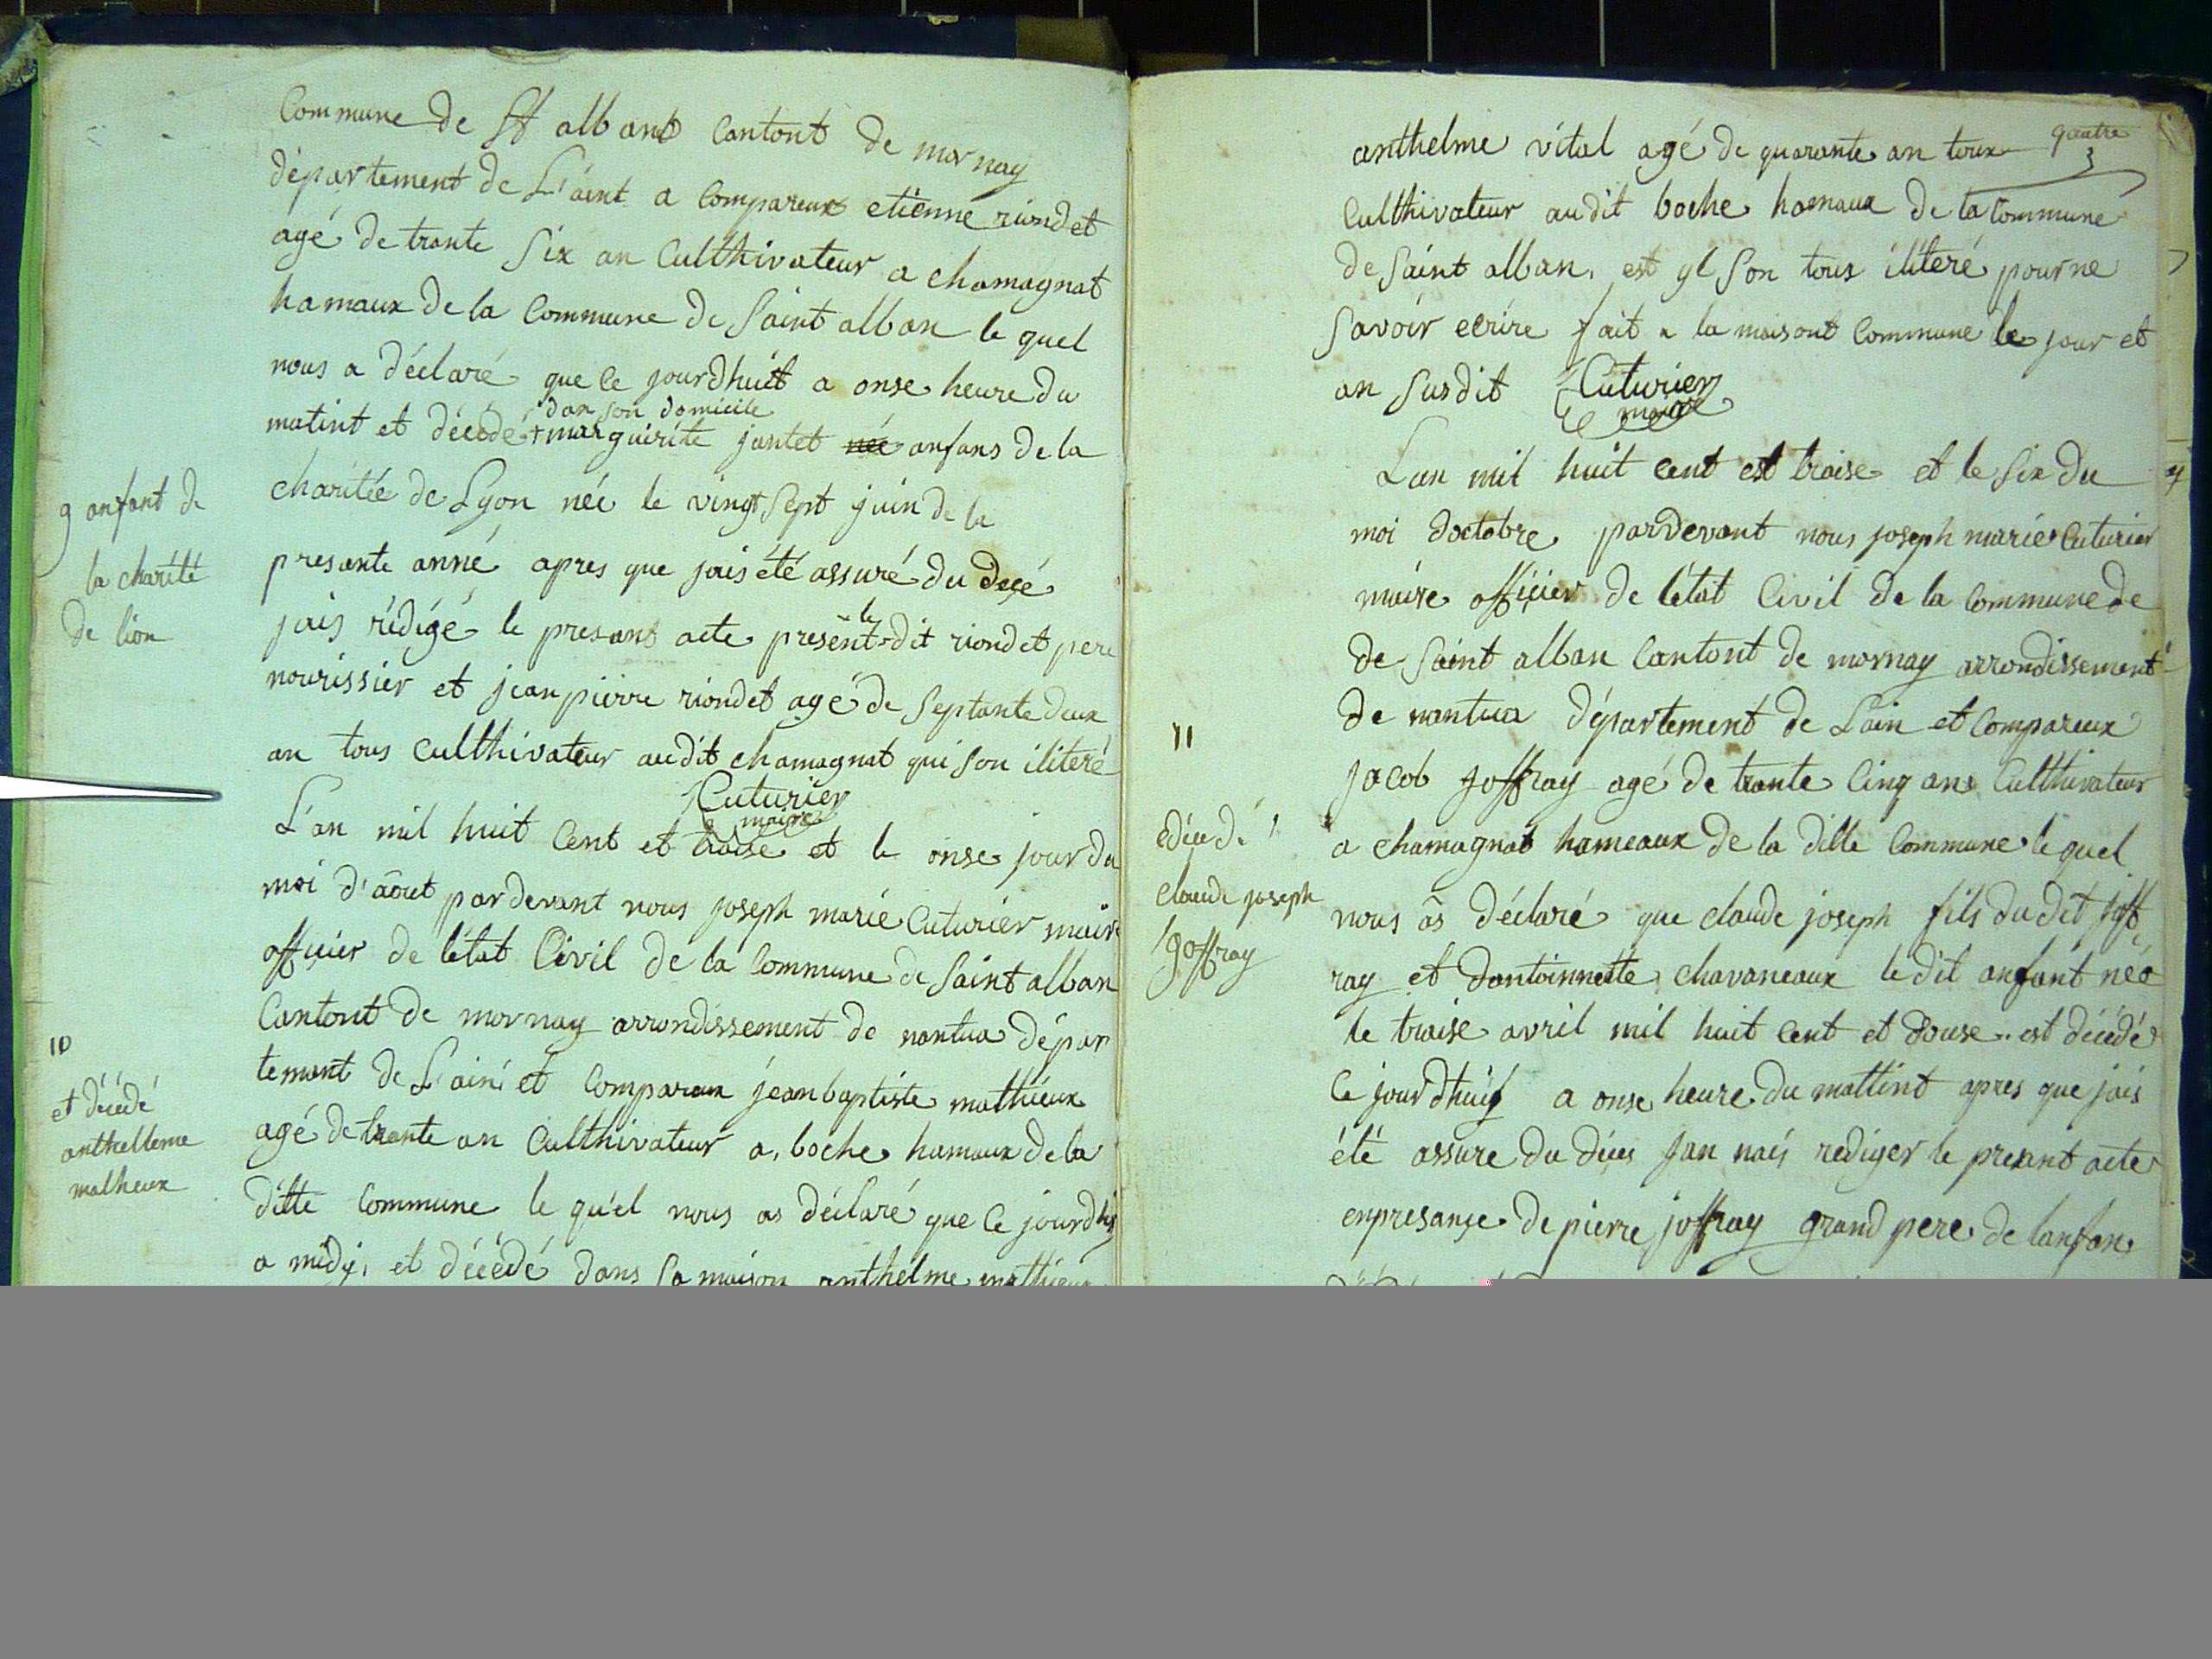 Commune de St albant Cantont de mornay
département de L'aint a Compareux etienne riondet
agé de trante Six an Culthivateur a chamagnat
hamaux de la Commune de Saint alban le quel
nous a déclaré que le jourdhuit a onse heure du
dan son domicile
matint et décedé + marguirite jantet née anfans de la
charitée de Lyon née le vingt Sept juin de la
presante anné apres que jais été assuré du decé
le
jais rédigé le presant acte present dit riondet pere
nourissier et jean pierre riondet agé de Septante deux
an tous culthivateur audit chamagnat qui son iliteré
Cuturier
maire
9 anfant de
la charité
de lion
L'an mil huit Cent et traise et le onse jour du
moi d'aôut pardevant nous joseph marie Cuturier maire
officier de létat Civil de la Commune de Saint alban
Cantont de mornay arrondissement de nantua dépar
temant de L'ain et Comparaux jean baptiste mathieux
agé de trante an Culthivateur a boche hamaux de la
ditte Commune le qu'el nous as déclaré que Ce jourdhy
a midy, et décédé dans Sa maison anthelme mathieux
10
et décédé
anthelleme
matheux
anthelme vital agé de quarante an toux quatre
3
Culthivateur audit boche hamaux de la Commune
de Saint alban, est yl Son tous iliteré pour ne
Savoir ecrire fait a la maisont Commune le jour et
an Susdit Cuturier
maire
Lan mil huit cent est traise et le Six du
moi doctobre pardevant nous joseph marie Cuturier
maire officier de létat Civil de la Commune de
de Saint alban Cantont de mornay arrondissement
de nantua département de Lain et Compareux
jacob joffray agé de trante Cinq ans Culthivateur
a chamagnat hameaux de la ditte Commune le quel
nous as déclaré que claude joseph fils dudit joff
ray et dantoinnette chavaneaux ledit anfant née
le traise avril mil huit Cent et douse est décédé
Ce jourdhuit a onse heure du mattint apres que jais
été assure du déces jan nais rediger le presant acte
enpresançe de pierre joffray grand pere de lanfans
11
edécedé
claude joseph
joffray